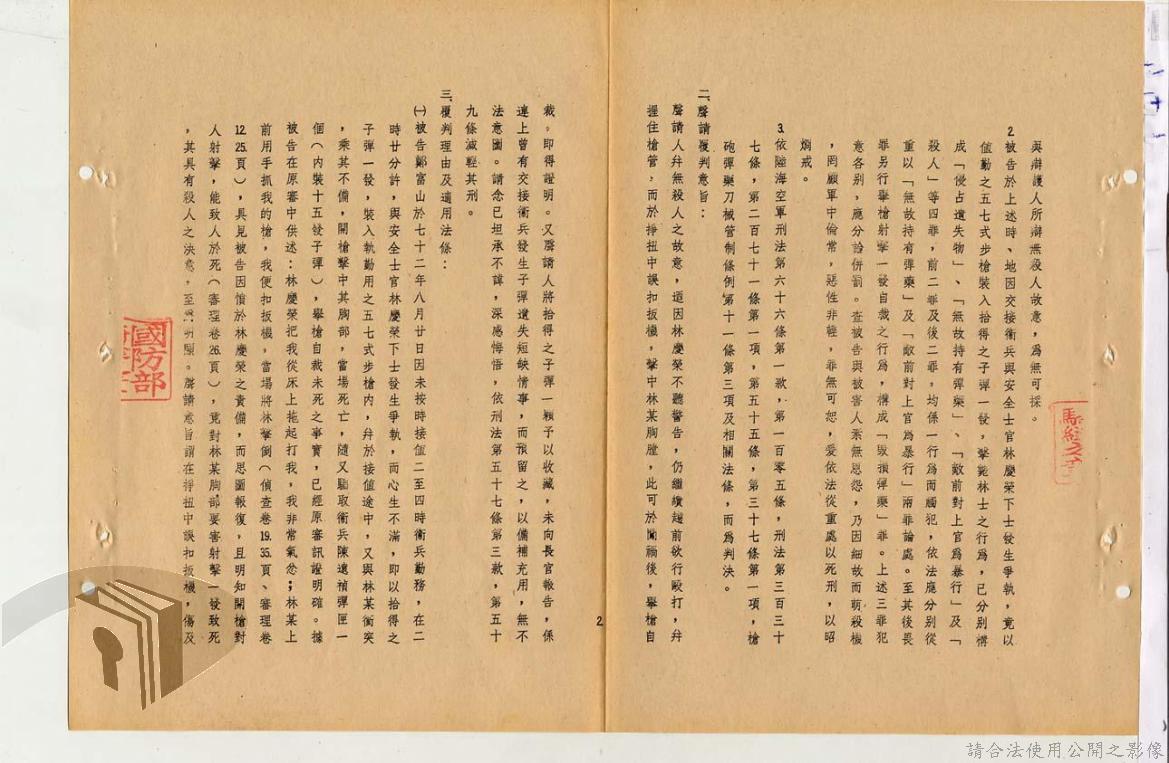 與辯護人所辯無殺人故意,為無可採。
2.被告於上述時、地因交接衛兵與安全士官林慶榮下士發生爭執,竟以
值勤之五七式步槍裝入拾得之子彈一發,擊斃林士之行為,已分別構
成「侵占遺失物」、「無故持有彈藥」、「敵前對上官為暴行」及「
殺人」等四罪,前二罪及後二罪,均係一行為而觸犯,依法應分別從
重以「無故持有彈藥」及「敵前對上官為暴行」兩罪論處。至其後畏
罪另行舉槍射擊一發自裁之行為,構成「毀損彈藥」罪。上述三罪犯
意各別,應分論併罰。查被告與被害人素無恩怨,乃因細故而萌殺機
,罔顧軍中倫常,惡性非輕,罪無可恕,爰依法從重處以死刑,以昭
炯戒。
3.依陸海空軍刑法第六十六條第一款,第一百零五條,刑法第三百三十
七條,第二百七十一條第一項,第五十五條,第三十七條第一項,槍
砲彈藥刀械管制條例第十一條第三項及相關法條,而為判決。
二、聲請覆判意旨:
聲請人幷無殺人之故意,這因林慶榮不聽警告,仍繼續趨前欲行毆打,幷
握住槍管,而於掙扭中誤扣扳機,擊中林某胸膛,此可於闖禍後,舉槍自
2
裁,即得證明。又聲請人將拾得之子彈一顆予以收藏,未向長官報告,係
連上曾有交接衛兵發生子彈遺失短缺情事,而預留之,以備補充用,無不
法意圖。請念已坦承不諱,深感悔悟,依刑法第五十七條第三款,第五十
九條減輕其刑。
三、覆判理由及適用法條:
㈠被告鄭富山於七十二年八月廿日因未按時接值二至四時衛兵勤務,在二
時廿分許,與安全士官林慶榮下士發生爭執,而心生不滿,即以拾得之
子彈一發,裝入執勤用之五七式步槍內,幷於接值途中,又與林某衝突
,乘其不備,開槍擊中其胸部,當場死亡,隨又騙取衛兵陳遠禎彈匣一
個(內裝十五發子彈),舉槍自裁未死之事實,已經原審訊證明確。據
被告在原審中供述:林慶榮把我從床上拖起打我,我非常氣忿;林某上
前用手抓我的槍,我便扣扳機,當場將林擊倒(偵查卷19.35.頁、審理卷
12.25.頁),具見被告因憤於林慶榮之責備,而思圖報復,且明知開槍對
人射擊,能致人於死(審理卷26.頁),竟對林某胸部要害射擊一發致死
,其具有殺人之決意,至為明顯。聲請意旨謂在掙扭中誤扣扳機,傷及
國防部
請合法使用公開之影像